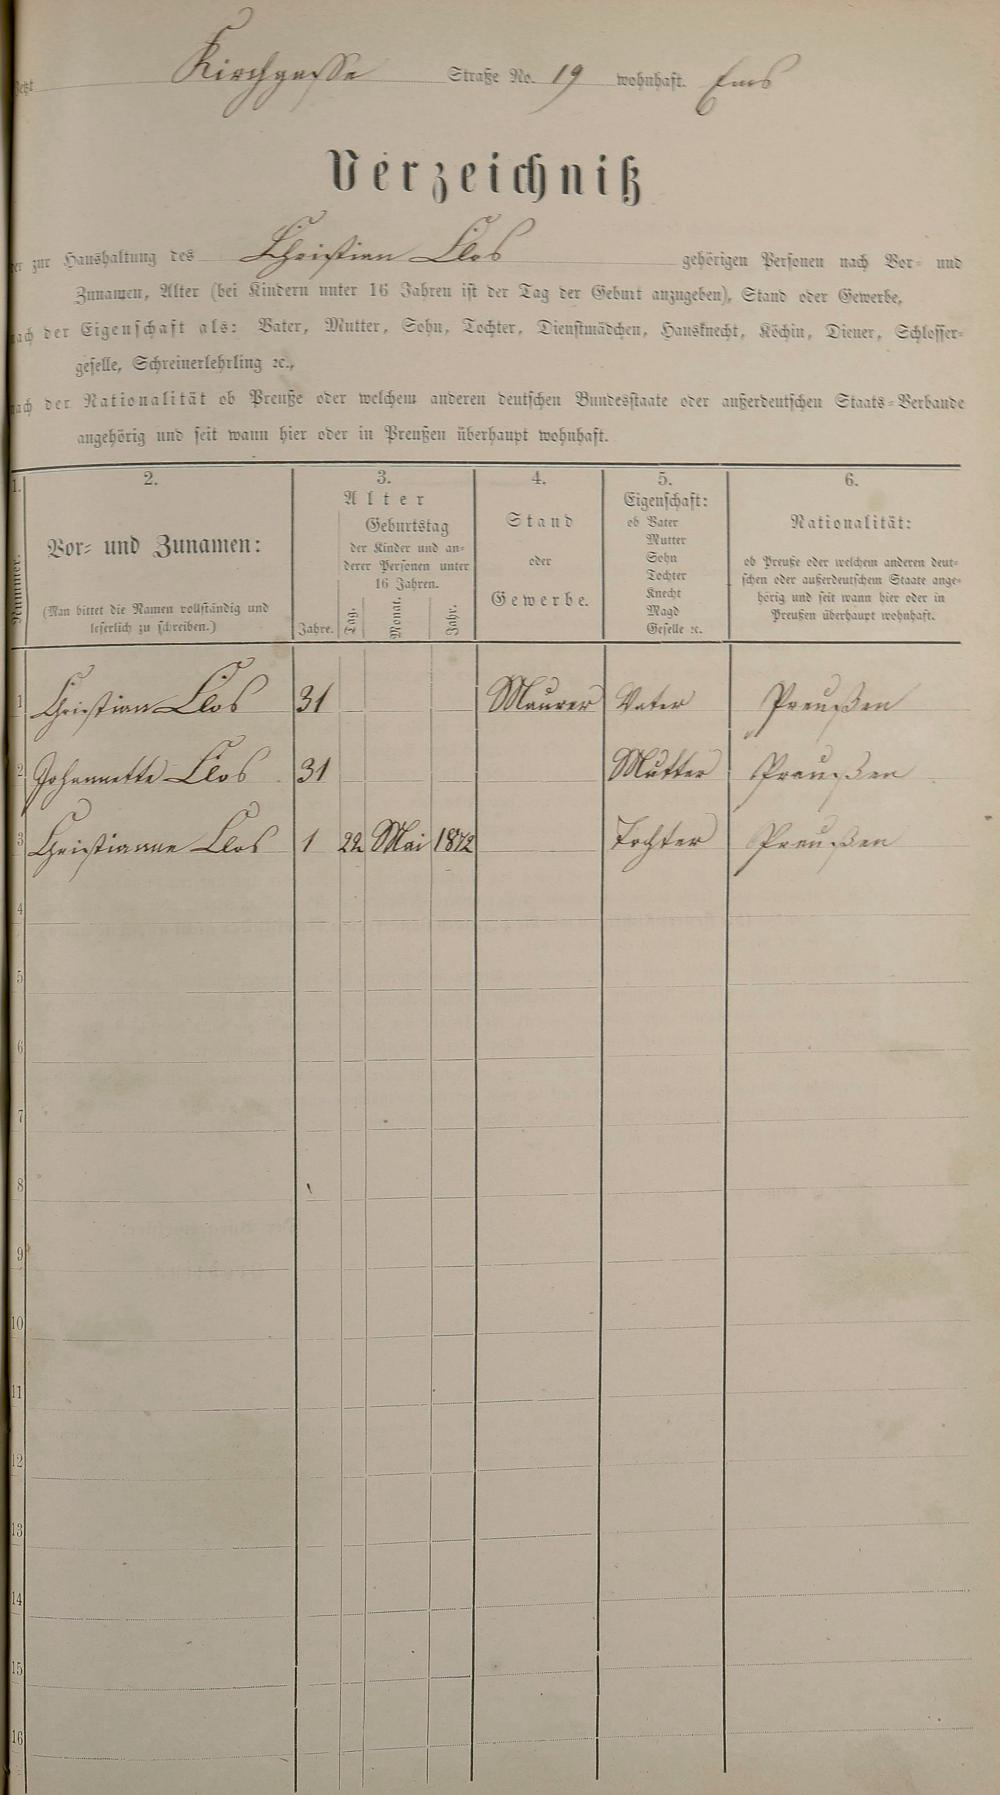 Jetzt Kirchgasse Straße No. 19 wohnhaft. Ems
Verzeichniß
der zur Haushaltung des Christian Clos gehörigen Personen nach Vor- und
Zunamen, Alter (bei Kindern unter 16 Jahren ist der Tag der Geburt anzugeben), Stand oder Gewerbe,
nach der Eigenschaft als: Vater, Mutter, Sohn, Tochter, Dienstmädchen, Hausknecht, Köchin, Diener, Schlosser-
geselle, Schreinerlehrling ꝛc.,
nach der Nationalität ob Preuße oder welchem anderen deutschen Bundesstaate oder außerdeutschen Staats-Verbande
angehörig und seit wann hier oder in Preußen überhaupt wohnhaft.
1.
Nummer.
2.
Vor- und Zunamen:
(Man bittet die Namen vollständig und
leserlich zu schreiben.)
3.
Alter
Jahre.
Geburtstag
der Kinder und an-
derer Personen unter
16 Jahren.
Tag.
Monat.
Jahr.
4.
Stand
oder
Gewerbe.
5.
Eigenschaft:
ob Vater
Mutter
Sohn
Tochter
Knecht
Magd
Geselle ꝛc.
6.
Nationalität:
ob Preuße oder welchem anderen deut-
schen oder außerdeutschem Staate ange-
hörig und seit wann hier oder in
Preußen überhaupt wohnhaft.
1 Christian Clos 31 Maurer Vater Preußen
2 Johannette Clos 31 Mutter Preußen
3 Christianne Clos 1 22 Mai 1872 Tochter Preußen
4
5
6
7
8
9
10
11
12
13
14
15
16